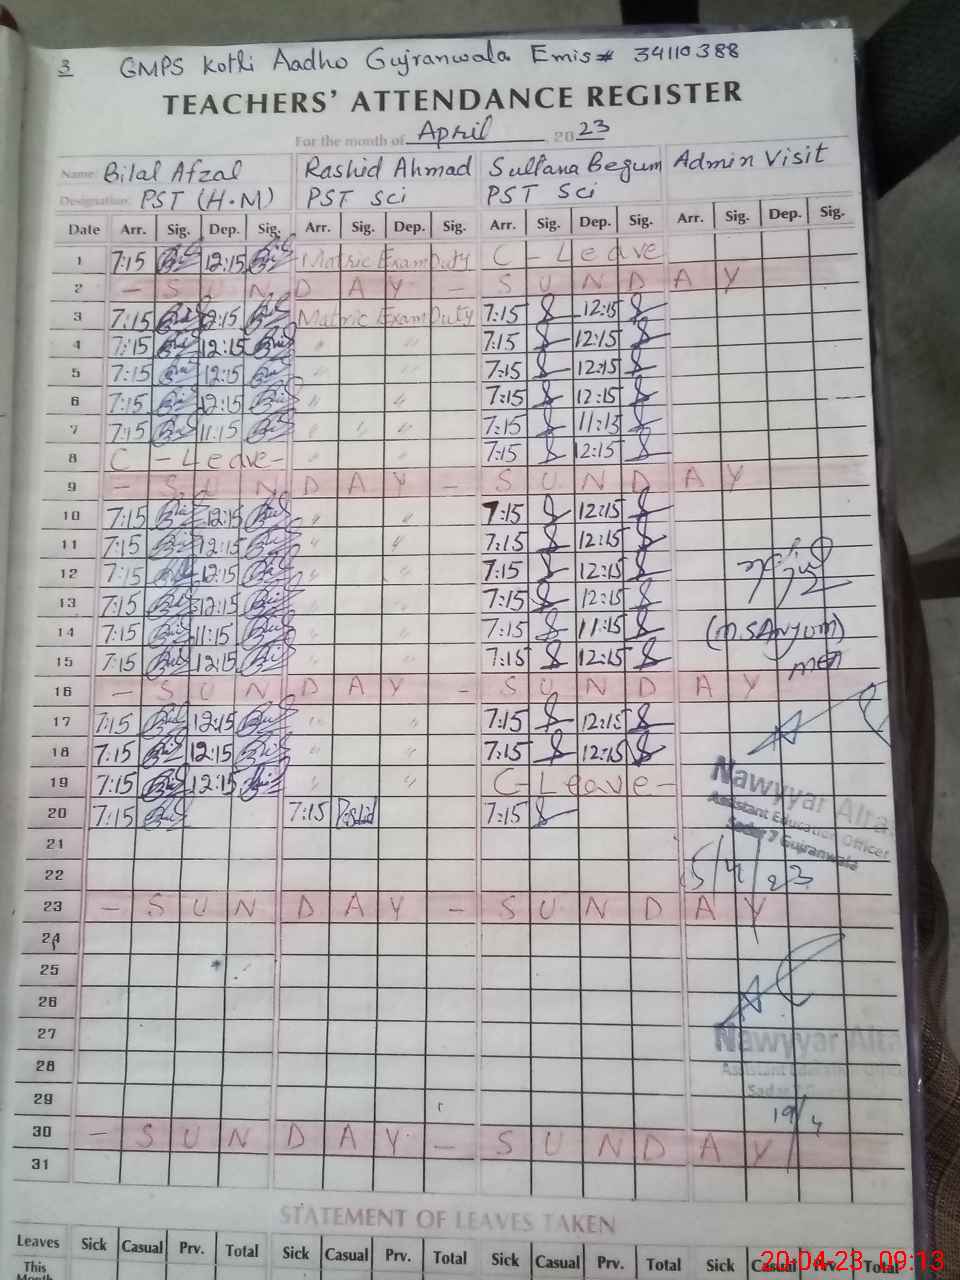 3 GMPS Kotli Aadho Gujranwala Emis# 34110388
TEACHERS' ATTENDANCE REGISTER
For the month of April, 2023
Name: Bilal Afzal Rashid Ahmad Sultana Begum Admin Visit
Designation: PST (H.M) PST Sci PST Sci
Date Arr. Sig. Dep. Sig. Arr. Sig. Dep. Sig. Arr. Sig. Dep. Sig. Arr. Sig. Dep. Sig.
1 7:15 12:15 Matric Exam Duty C - Leave
2 - SUNDAY - SUNDAY
3 7:15 12:15 Matric Exam Duty 7:15 12:15
4 7:15 12:15 " " 7:15 12:15
5 7:15 12:15 " " 7:15 12:15
6 7:15 12:15 " " 7:15 12:15
7 7:15 11:15 " " " 7:15 11:15
8 C - Leave - " " 7:15 12:15
9 - SUNDAY - SUNDAY
10 7:15 12:15 " " 7:15 12:15
11 7:15 12:15 " " 7:15 12:15
12 7:15 12:15 " " 7:15 12:15
13 7:15 12:15 " " 7:15 12:15
14 7:15 11:15 " " 7:15 11:15
(M.SANJUM)
15 7:15 12:15 " " 7:15 12:15
16 - SUNDAY - SUNDAY
17 7:15 12:15 " " 7:15 12:15
18 7:15 12:15 " " 7:15 12:15
19 7:15 12:15 " " C-Leave-
Nawyyar Alta
Assistant Education Officer
Sadar 7 Gujranwala
20 7:15 7:15 Rashid 7:15
21
22
5/4/23
23 - SUNDAY - SUNDAY
24
25
26
27
Nawyyar Alta
28
Assistant Education Office
29
19/4
30 - SUNDAY - SUNDAY
31
STATEMENT OF LEAVES TAKEN
Leaves Sick Casual Prv. Total Sick Casual Prv. Total Sick Casual Prv. Total Sick Casual Prv. Total
This
Month
20-04-23 09:13